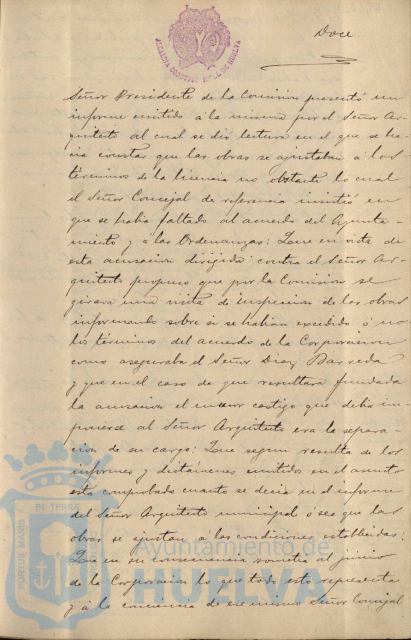 Doce
ALCALDIA CONSTITUCIONAL DE HUELVA
Señor Presidente de la Comision presentó un
informe emitido á la misma por el Señor Ar-
quitecto al cual se dió lectura en el que se ha-
cia constar que las obras se ajustaban á los
términos de la licencia no obstante lo cual
el Señor Concejal de referencia insistió en
que se habia faltado al acuerdo del Ayunta-
miento y á las Ordenanzas: Que en vista de
esta acusacion dirigida contra el Señor Ar-
quitecto propuso que por la Comision se
girara una visita de inspeccion de las obras
informando sobre si se habian excedido ó no
los términos del acuerdo de la Corporacion
como aseguraba el Señor Diaz Barreda
y que en el caso de que resultara fundada
la acusacion el menor castigo que debia im-
ponerse al Señor Arquitecto era la separa-
cion de su cargo: Que segun resulta de los
informes y dictámenes emitidos en el asunto
está comprobado cuanto se decia en el informe
del Señor Arquitecto municipal ó sea que las
obras se ajustan á las condiciones establecidas:
Que en su consecuencia sometia al juicio
de la Corporacion lo que todo esto representa
y á la conciencia de ese mismo Señor Concejal
PORTUS MARIS
EN TERRA
Ayuntamiento de
HUELVA